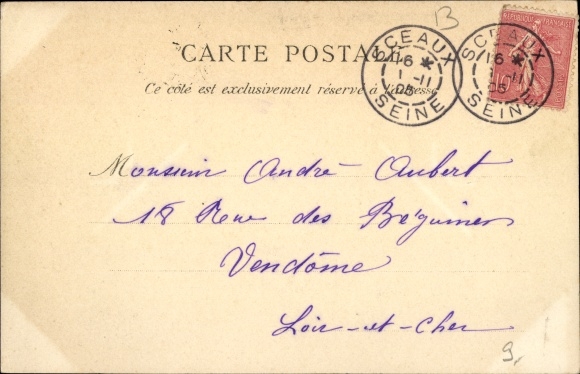 B
RÉPUBLIQUE FRANÇAISE
CARTE POSTALE
Ce côté est exclusivement réservé à l'adresse
SCEAUX
16 *
1-11
05
SEINE
SCEAUX
16 *
1-11
05
SEINE
10
Monsieur André Aubert
18 Rue des Béguines
Vendôme
Loir-et-Cher
9.